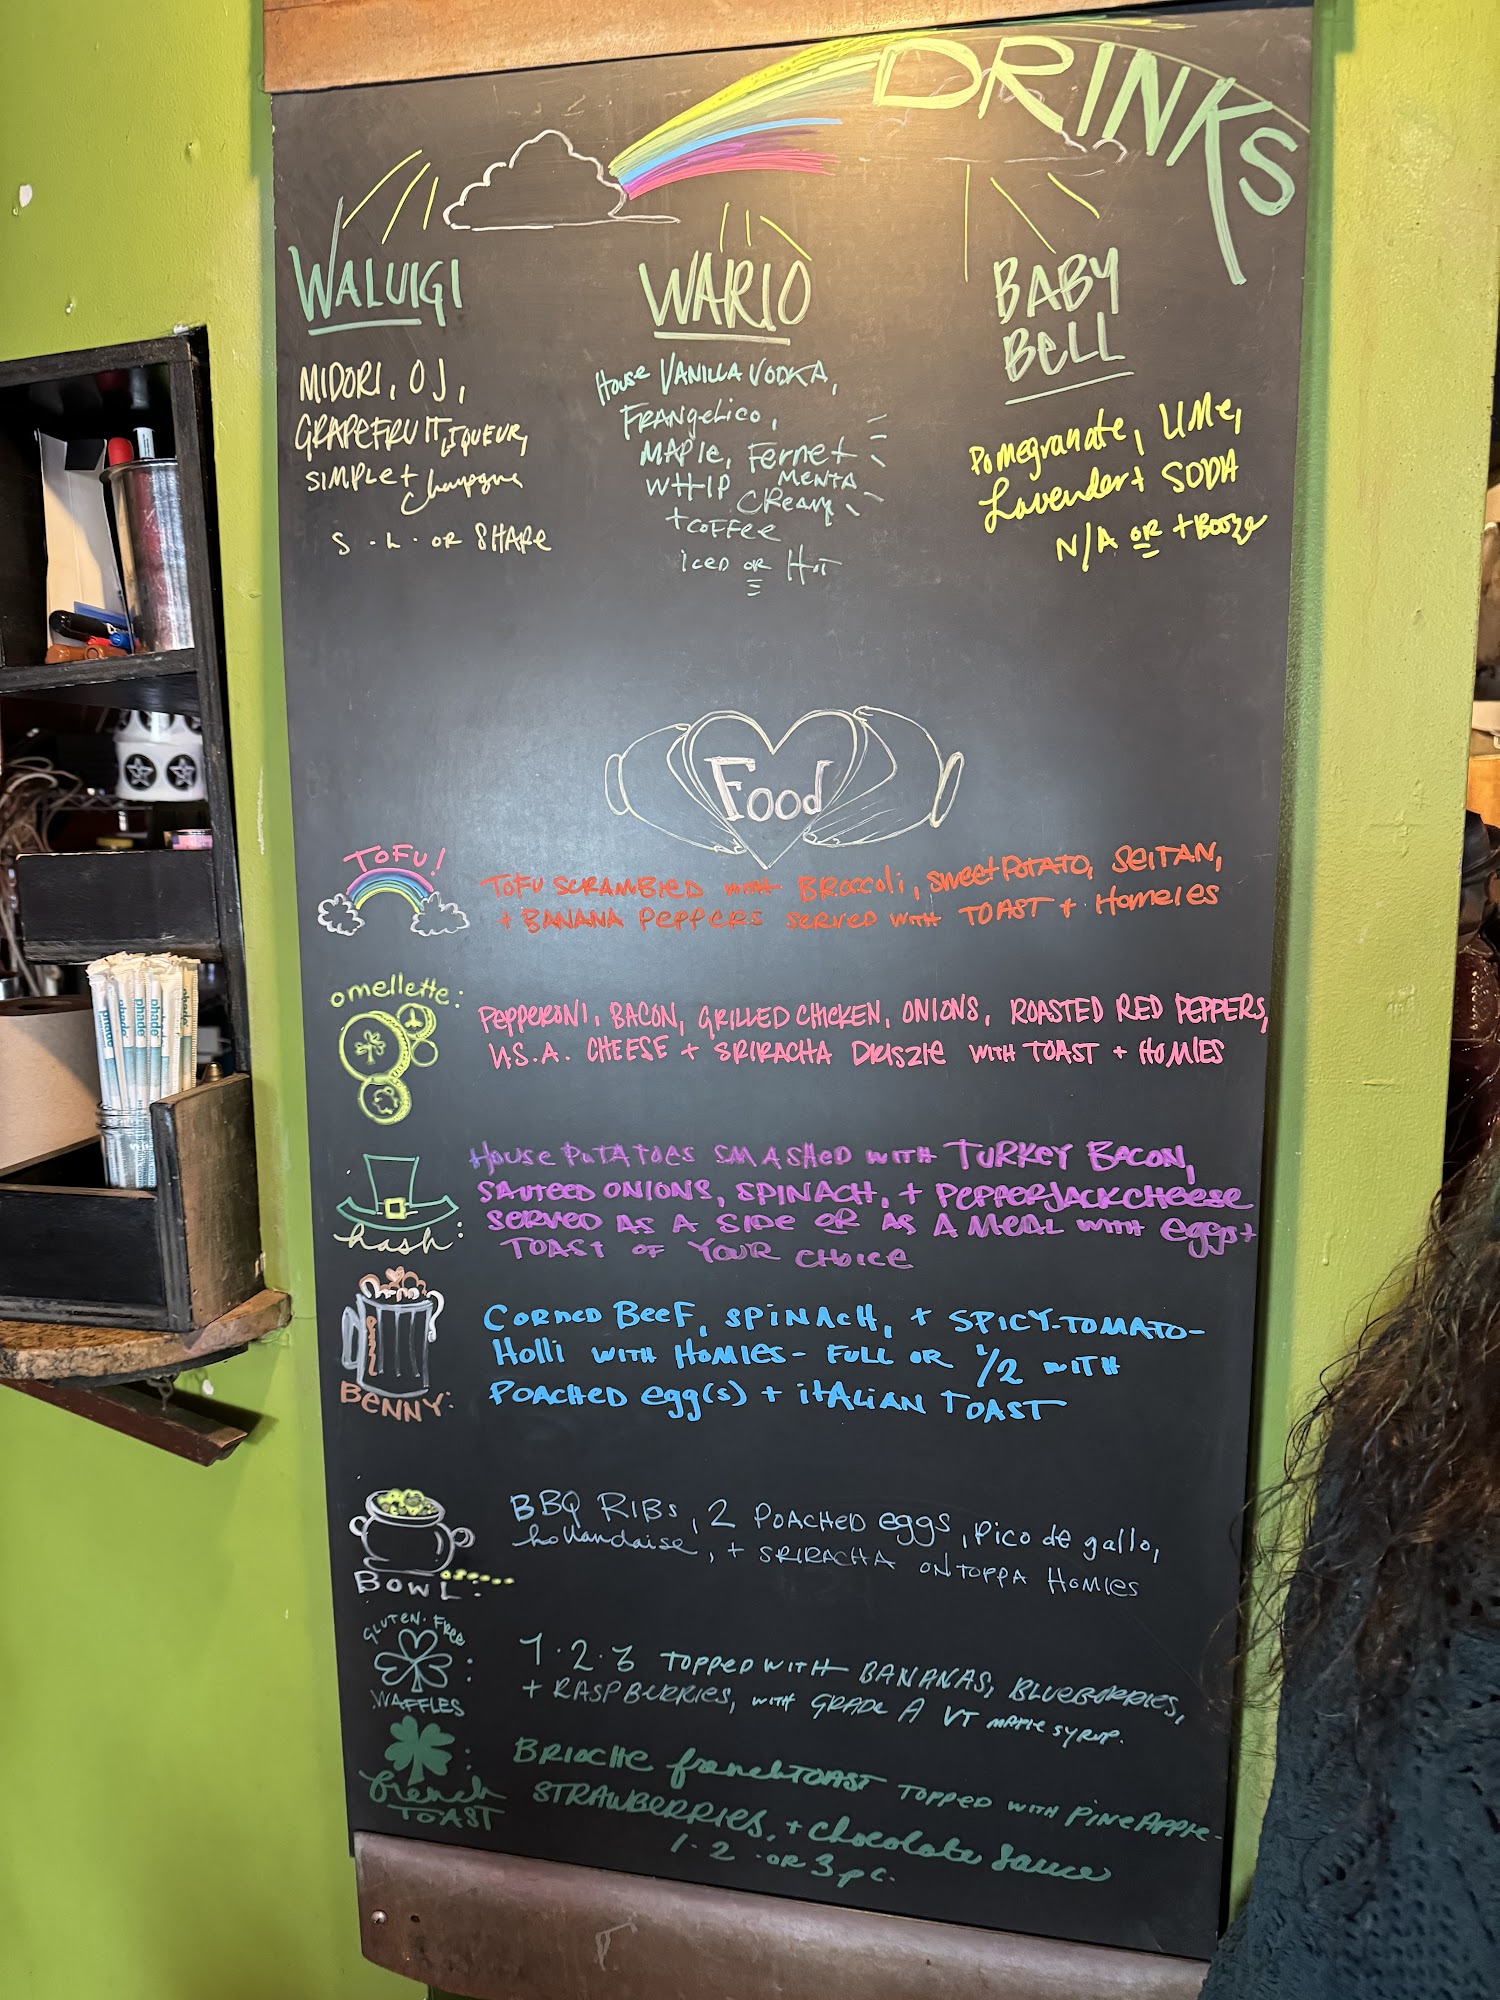 DRINKS
WALUIGI
MIDORI, OJ,
GRAPEFRUIT LIQUEUR,
SIMPLE + Champagne
S . L . OR SHARE
WARIO
House VANILLA VODKA,
FRANGELICO,
MAPLE, Fernet
MENTA
WHIP CREAM
+ COFFEE
ICED OR HOT
BABY
BELL
Pomegranate, LIME,
Lavender + SODA
N/A OR + Booze
Food
TOFU!
TOFU SCRAMBLED WITH BROCCOLI, SWEET POTATO, SEITAN,
+ BANANA PEPPERS SERVED WITH TOAST + HOMEIES
omellette:
PEPPERONI, BACON, GRILLED CHICKEN, ONIONS, ROASTED RED PEPPERS,
U.S.A. CHEESE + SRIRACHA DRISZLE WITH TOAST + HOMIES
hash:
HOUSE POTATOES SMASHED WITH TURKEY BACON,
SAUTEED ONIONS, SPINACH, + PEPPERJACK CHEESE
SERVED AS A SIDE OR AS A MEAL WITH eggs +
TOAST OF YOUR CHOICE
BENNY:
CORNED BEEF, SPINACH, + SPICY-TOMATO-
Holli WITH HOMIES - FULL OR 1/2 WITH
POACHED egg(s) + ITALIAN TOAST
BOWL:
BBQ RIBS, 2 POACHED eggs, pico de gallo,
hollandaise, + SRIRACHA ONTOPPA HOMIES
GLUTEN-FREE
WAFFLES
:
1·2·3 TOPPED WITH BANANAS, BLUEBERRIES,
+ RASPBURRIES, WITH GRADE A VT MAPLE SYRUP.
french
TOAST
:
BRIOCHE french TOAST TOPPED WITH PINEAPPLE-
STRAWBERRIES, + chocolate sauce
1·2 ·OR 3 pc.
phade
phade
phade
phade